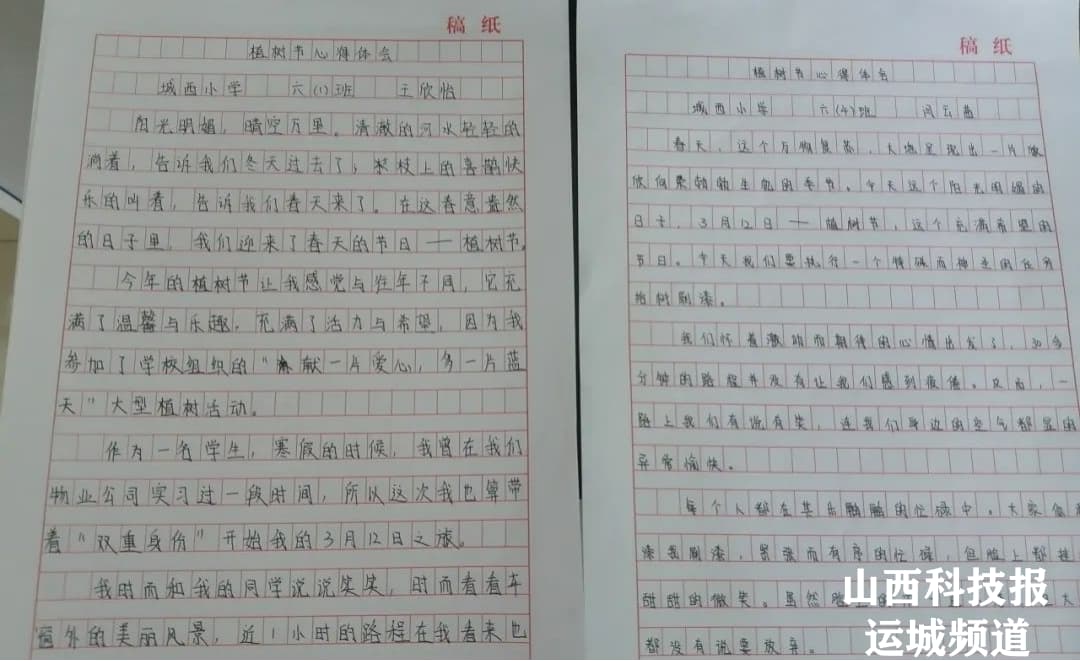 稿 纸
植树节心得体会
城西小学 六(1)班 王欣怡
阳光明媚，晴空万里。清澈的河水轻轻的
淌着，告诉我们冬天过去了；树枝上的喜鹊快
乐的叫着，告诉我们春天来了。在这春意盎然
的日子里，我们迎来了春天的节日——植树节。
今年的植树节让我感觉与往年不同，它充
满了温馨与乐趣，充满了活力与希望，因为我
参加了学校组织的“献一片爱心，多一片蓝
天”大型植树活动。
作为一名学生，寒假的时候，我曾在我们
物业公司实习过一段时间，所以这次我也算带
着“双重身份”开始我的3月12日之旅。
我时而和我的同学说说笑笑，时而看看车
窗外的美丽风景，近1小时的路程在我看来也
稿 纸
植树节心得体会
城西小学 六(4)班 闫云
春天，这个万物复苏，大地呈现出一片欣
欣向荣勃勃生机的季节。今天这个阳光明媚的
日子，3月12日——植树节，这个充满希望的
节日。今天我们要执行一个特殊而神圣的任务
给树刷漆。
我们怀着激动而期待的心情出发了，30多
分钟的路程并没有让我们感到疲倦。反而，一
路上我们有说有笑，连我们身边的空气都显的
异常愉快。
每个人都在其乐融融的忙碌中。大家你
漆我刷漆，紧张而有序的忙碌，但脸上都挂
甜甜的微笑。虽然 大
都没有说要放弃。
山西科技报
运城频道